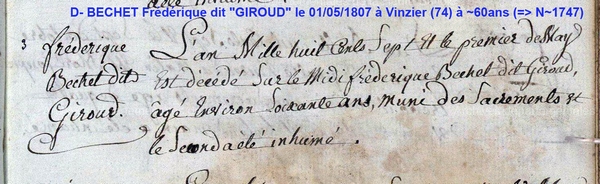 D- BECHET Frédérique dit "GIROUD" le 01/05/1807 à Vinzier (74) à ~60ans (=> N~1747)
3
frédérique
Bechet dit
Giroud.
L'an Mille huit Cents Sept et le premier de May
Est décédé Sur le Midi frédérique Bechet dit Giroud,
âgé Environ Soixante ans, muni des Sacrements et
le Second a eté inhumé.